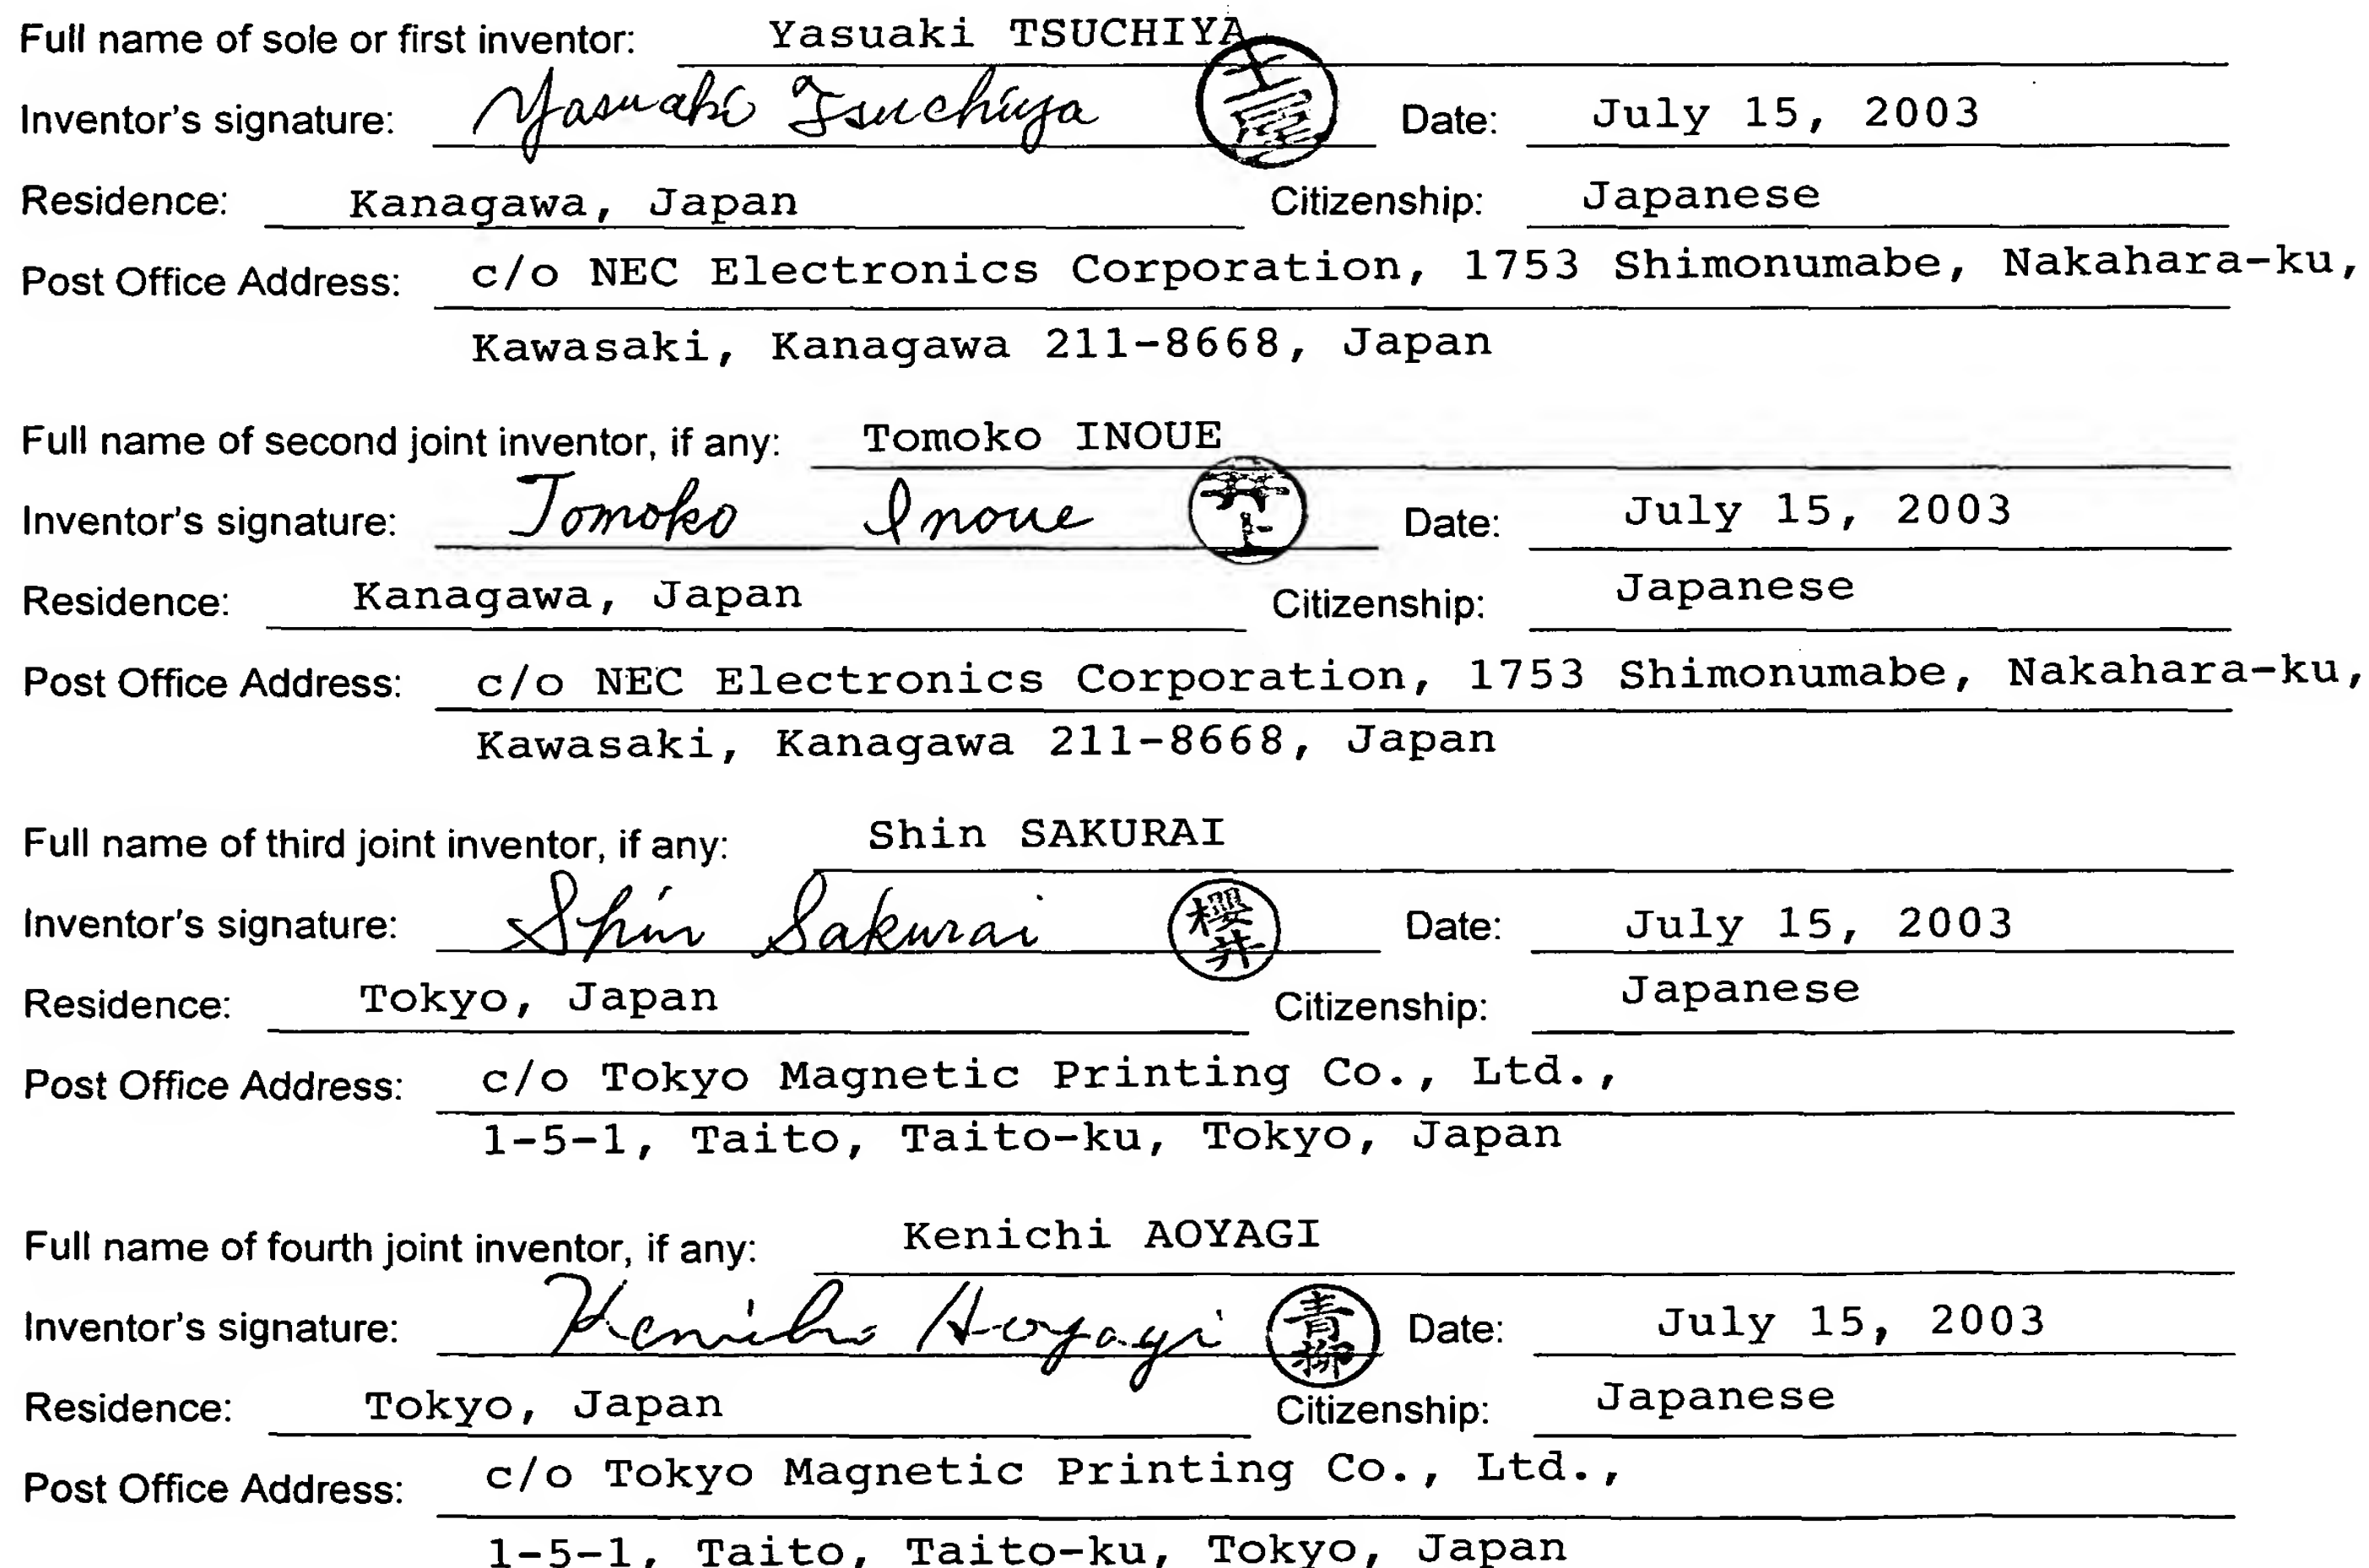 Full name of sole or first inventor: Yasuaki TSUCHIYA
Inventor's signature: Yasuaki Tsuchiya 土屋 Date: July 15, 2003
Residence: Kanagawa, Japan Citizenship: Japanese
Post Office Address: c/o NEC Electronics Corporation, 1753 Shimonumabe, Nakahara-ku,
Kawasaki, Kanagawa 211-8668, Japan
Full name of second joint inventor, if any: Tomoko INOUE
Inventor's signature: Tomoko Inoue Date: July 15, 2003
Residence: Kanagawa, Japan Citizenship: Japanese
Post Office Address: c/o NEC Electronics Corporation, 1753 Shimonumabe, Nakahara-ku,
Kawasaki, Kanagawa 211-8668, Japan
Full name of third joint inventor, if any: Shin SAKURAI
Inventor's signature: Shin Sakurai 櫻井 Date: July 15, 2003
Residence: Tokyo, Japan Citizenship: Japanese
Post Office Address: c/o Tokyo Magnetic Printing Co., Ltd.,
1-5-1, Taito, Taito-ku, Tokyo, Japan
Full name of fourth joint inventor, if any: Kenichi AOYAGI
Inventor's signature: Kenichi Aoyagi 青柳 Date: July 15, 2003
Residence: Tokyo, Japan Citizenship: Japanese
Post Office Address: c/o Tokyo Magnetic Printing Co., Ltd.,
1-5-1, Taito, Taito-ku, Tokyo, Japan